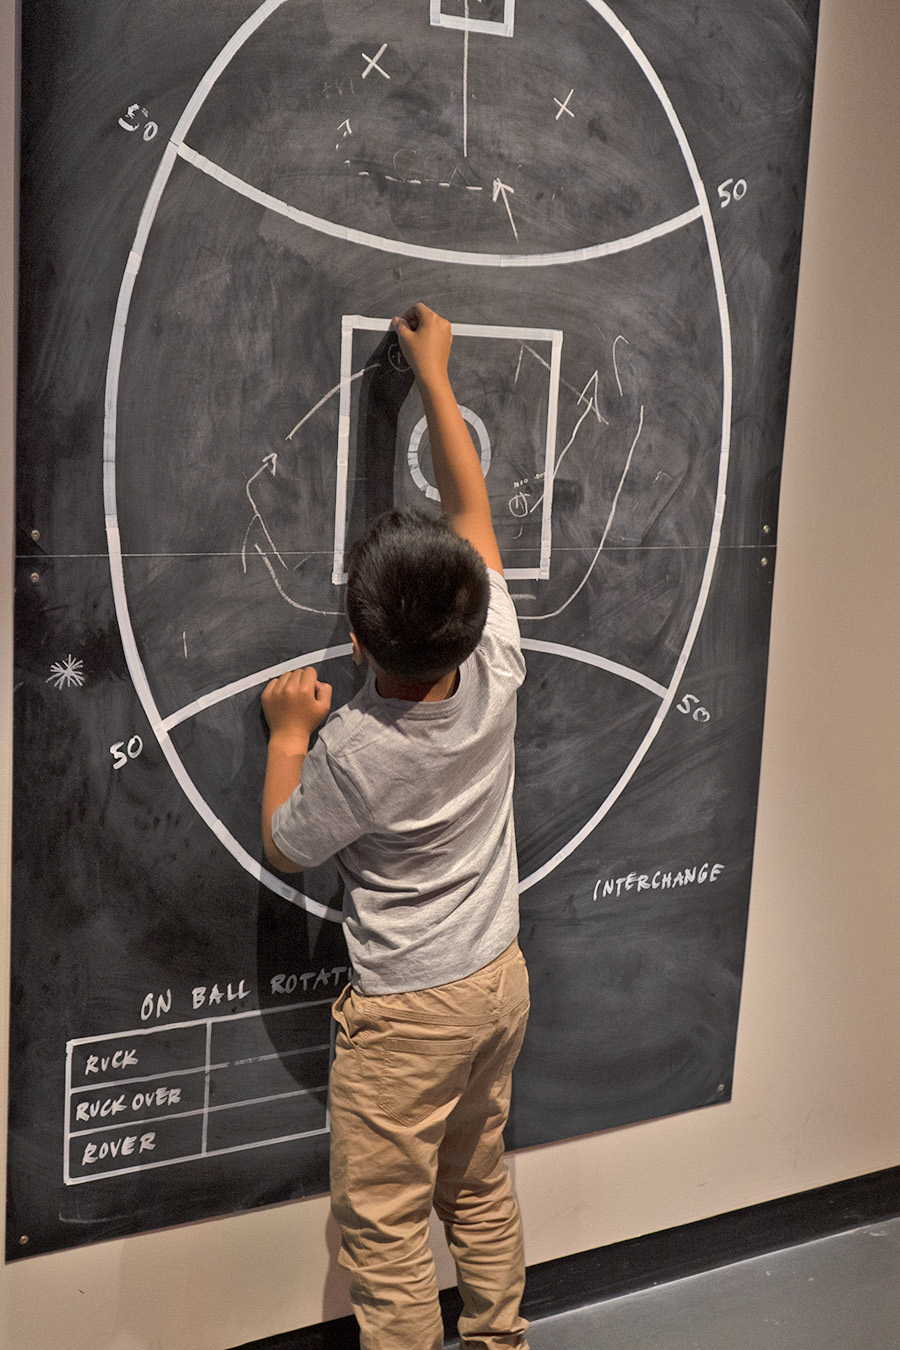 50
50
50
50
INTERCHANGE
ON BALL
RUCK
RUCK OVER
ROVER